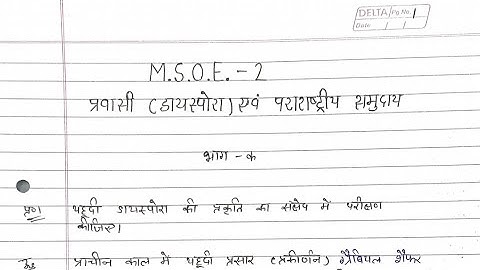 DELTA Pg No. 1
Date / /
M.S.O.E. - 2
प्रवासी (डायस्पोरा) एवं पराराष्ट्रीय समुदाय
भाग - क
प्र०1 यहूदी डायस्पोरा की प्रकृति का संक्षेप में परीक्षण
कीजिए।
प्राचीन काल में यहूदी प्रसार (प्रकीर्णन) गैब्रियल शैफर